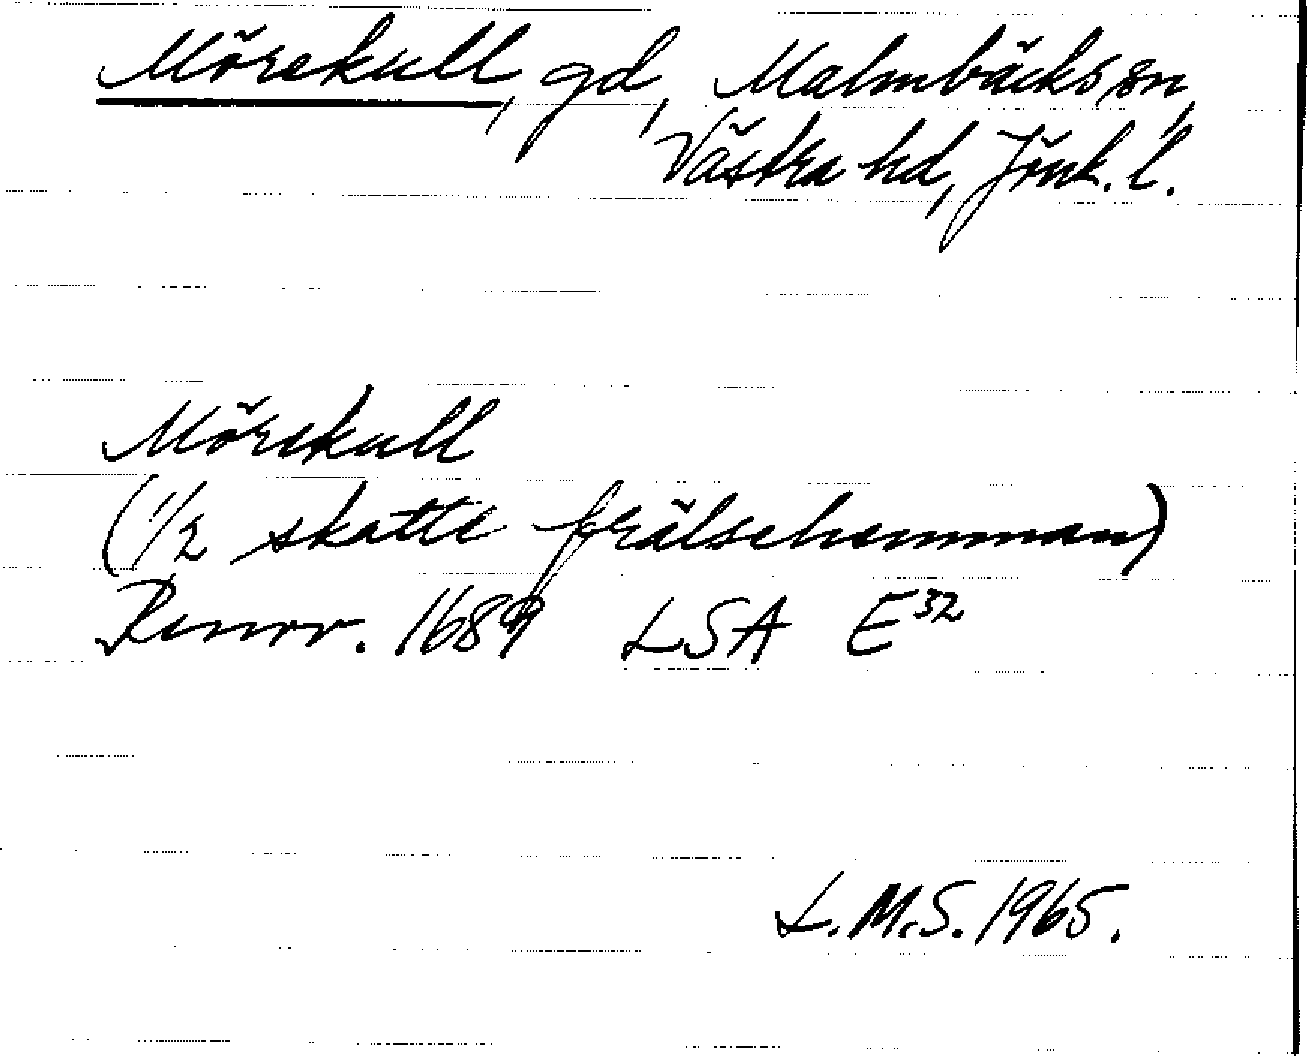 Mörekull, gd, Malmbäcks sn,
Västra hd, Jönk. l.
Mörekull
(1/2 skatte frälsehemman)
Renov. 1689 LSA E32
L.M.S. 1965.